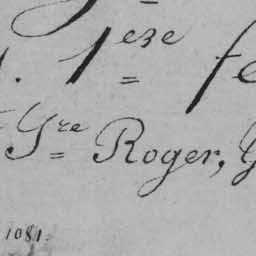 1eze fe
Gre Roger, G
1081.